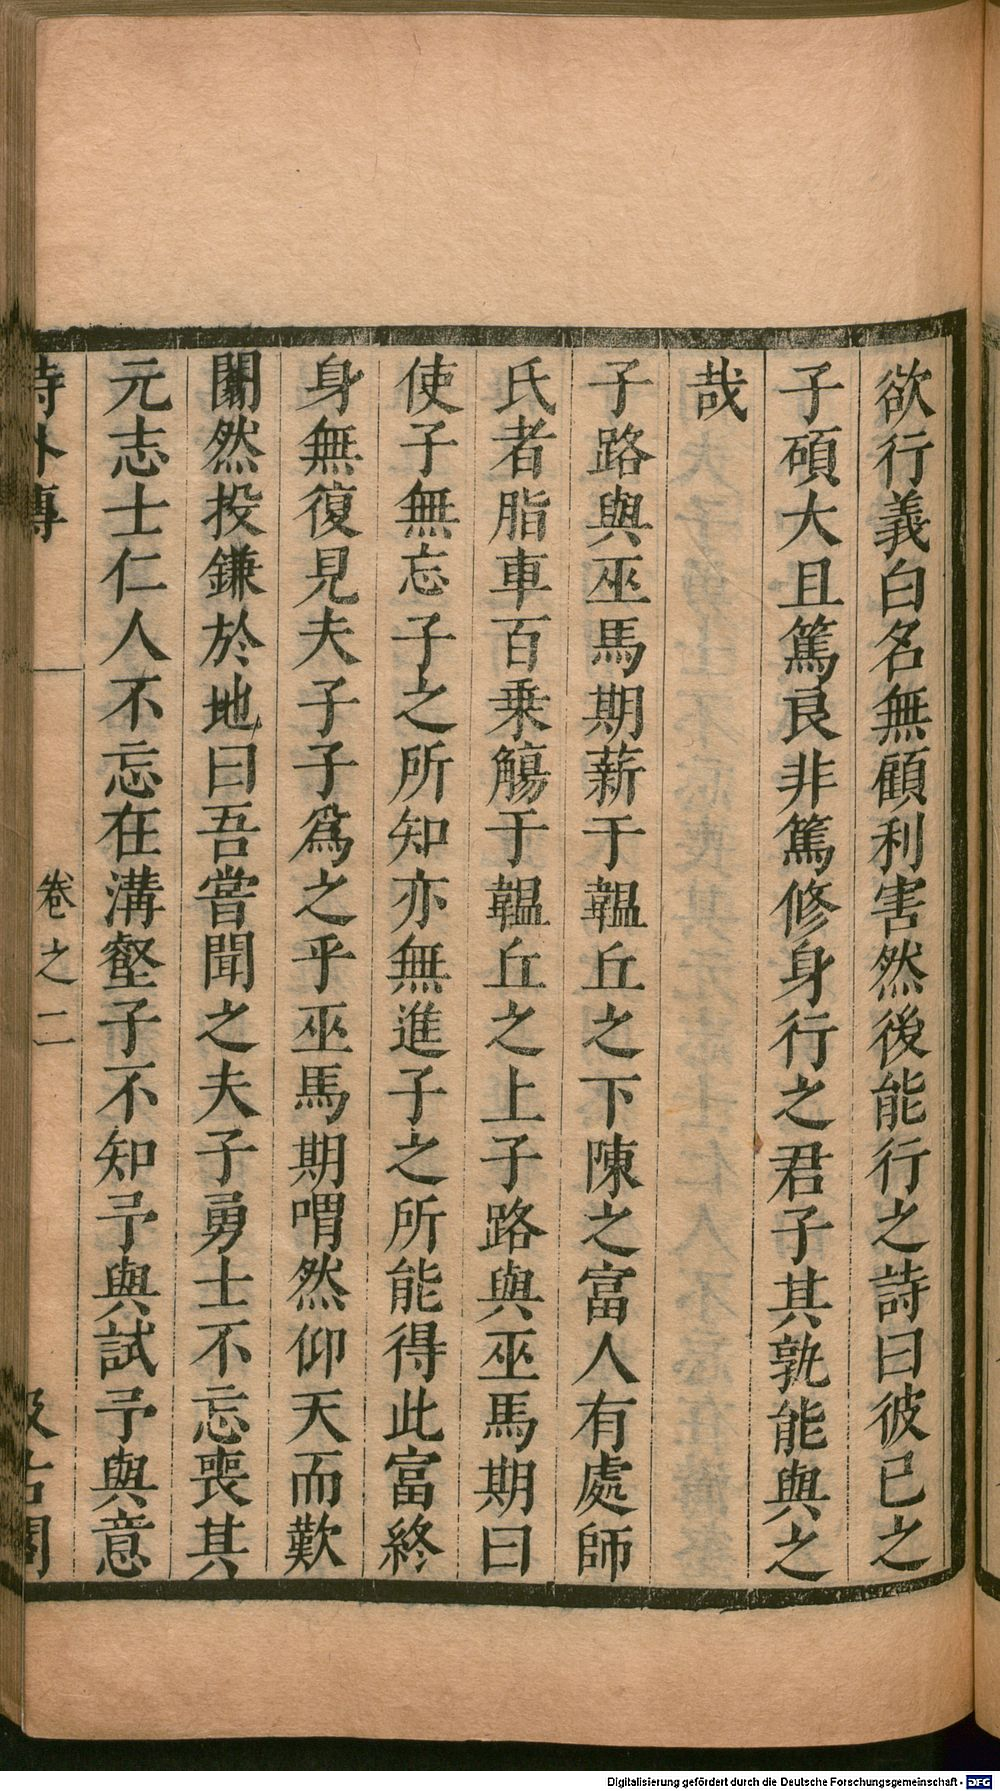 欲行義白名無顧利害然後能行之詩曰彼已之
子碩大且篤良非篤修身行之君子其孰能與之
哉
子路與巫馬期薪于韞丘之下陳之富人有處師
氏者脂車百乗觴于韞丘之上子路與巫馬期曰
使子無忘子之所知亦無進子之所能得此富終
身無復見夫子子爲之乎巫馬期喟然仰天而歎
闟然投鎌於地曰吾嘗聞之夫子勇士不忘喪其
元志士仁人不忘在溝壑子不知予與試予與意
詩外傳
卷之二
汲古閣
Digitalisierung gefördert durch die Deutsche Forschungsgemeinschaft - DFG